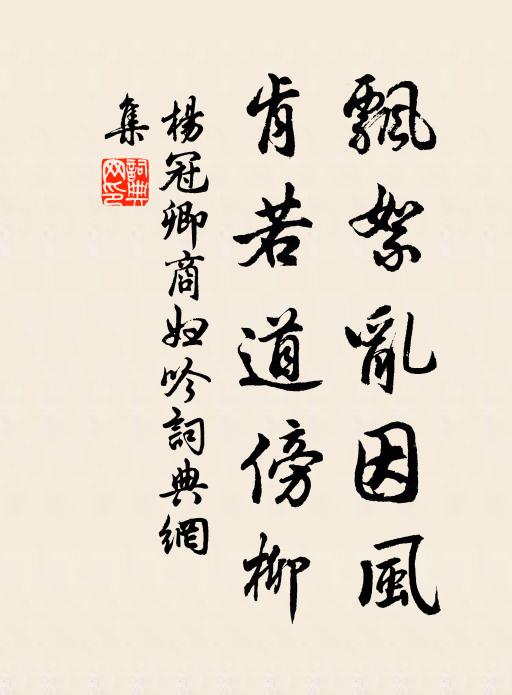 飄絮亂因風
肯若道傍柳
楊冠卿商婦吟詞典網
集
詞典網印